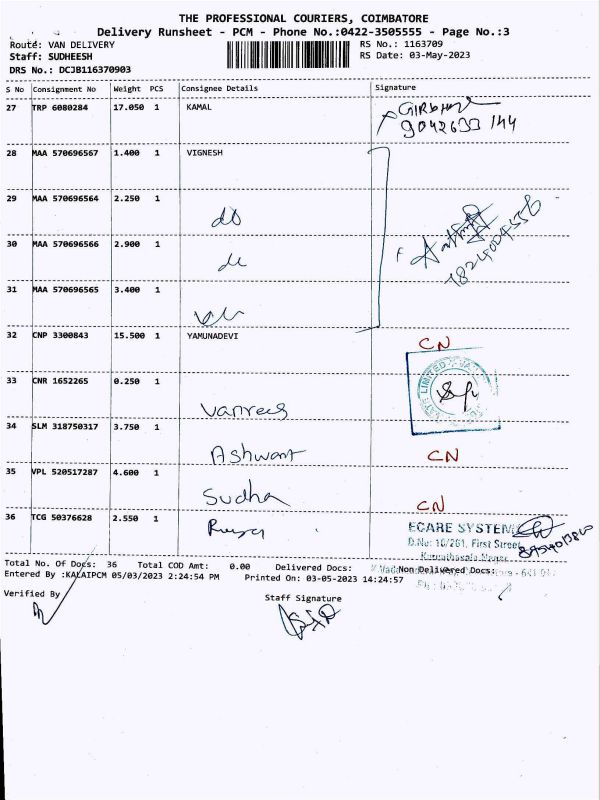 THE PROFESSIONAL COURIERS, COIMBATORE
Delivery Runsheet - PCM - Phone No.:0422-3505555 - Page No.:3
Route: VAN DELIVERY RS No.: 1163709
Staff: SUDHEESH RS Date: 03-May-2023
DRS No.: DCJB116370903
S No Consignment No Weight PCS Consignee Details Signature
27 TRP 6080284 17.050 1 KAMAL
9042633144
28 MAA 570696567 1.400 1 VIGNESH
29 MAA 570696564 2.250 1
do
30 MAA 570696566 2.900 1
31 MAA 570696565 3.400 1
32 CNP 3300843 15.500 1 YAMUNADEVI CN
33 CNR 1652265 0.250 1
34 SLM 318750317 3.750 1
Ashwant CN
35 VPL 520517287 4.600 1
Sudha CN
36 TCG 50376628 2.550 1
ECARE SYSTEM
D.No: 10/261, First Street
Total No. Of Docs: 36 Total COD Amt: 0.00 Delivered Docs: Non Delivered Docs:
Entered By :KALAIPCM 05/03/2023 2:24:54 PM Printed On: 03-05-2023 14:24:57
Verified By
Staff Signature